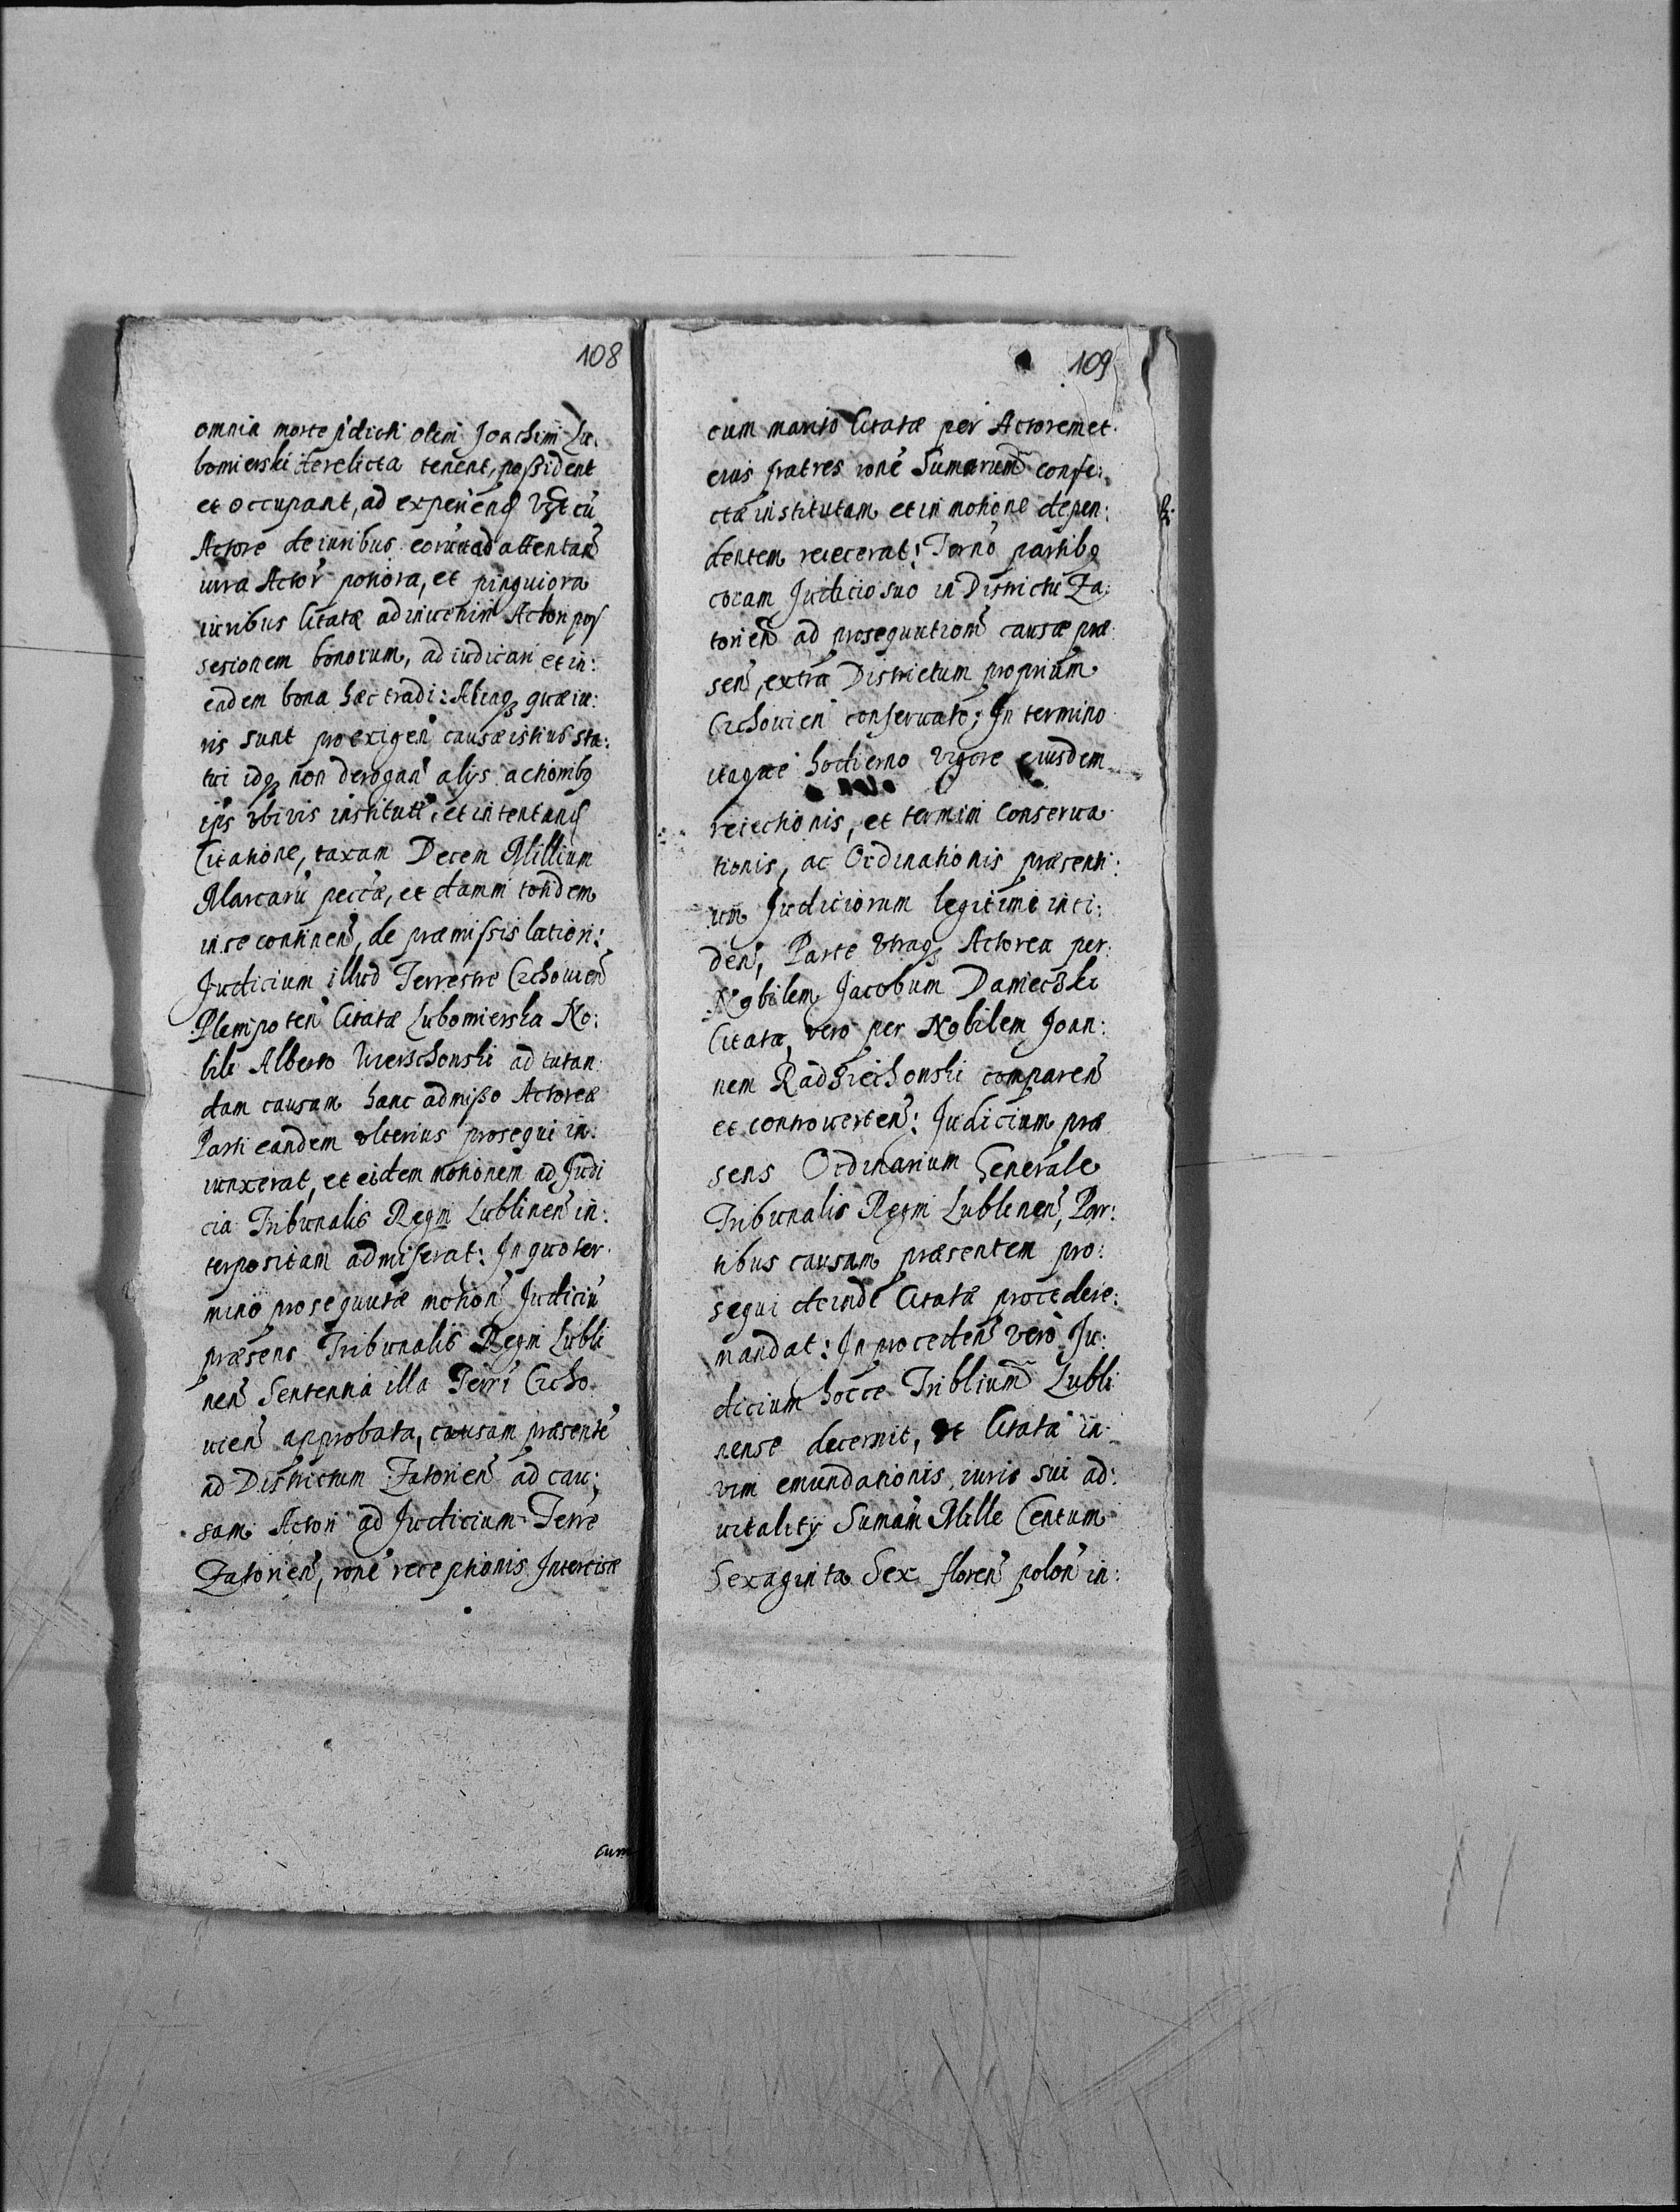 108
omnia morte pdicti olim Joachimi Lu:
bomierski derelicta tenent, possident
et occupant, ad experien
Actore de iuribus eorum ad attentan
iura Actor potiora, et pinguiora
iuribus Citatæ adinvenim Actori pos
sesionem bonorum, adiudicari et in:
eadem bona hæc tradi: Aliaqꝫ quæ iu:
ris sunt pro exigen causæ istius sta:
tui idqꝫ non derogan alys actionibꝫ
ijs vbivis institut, et intentan
Citatione, taxam Decem Millium
Marcaru pecca, et damni totidem
in se continen, de præmissis latiori:
Judicium illud Terrestre Czchouien
Plenipoten Citatæ Lubomierska No:
bili Alberto Wierschonski ad tutan
dam causam hanc admisso Actoreæ
Parti eandem vlterius prosequi in:
iunxerat, et eidem motionem ad Judi
cia Tribunalis Regni Lublinen in:
terpositam admiserat: In quo ter:
mino prosequutæ motion Judiciu
præsens Tribunalis Regni Lubli
nen Sententia illa Terri Czcho
uien approbata, causam præsente
ad Districtum Zatorien ad cau:
sam Actori ad Judicium Terre
Zatorien, rone receptionis Intercisæ
cum
109
cum marito Citatæ per Actorem et
eius fratres rone Sumarum confe:
ctæ institutam et in motione depen:
dentem reiecerat: Terno partibꝫ
coram Judicio suo in Districtu Za:
torien ad prosequution causæ præ
sen, extra Districtum proprium
Czchouien conseruato; In termino
itaque hodierno vigore eiusdem
reiectionis, et termini conserua
tionis, ac Ordinationis præsenti:
um Judiciorum legitime inci:
den, Parte vtraqꝫ Actorea per
Nobilem Jacobum Damiecski
Citata vero per Nobilem Joan:
nem Radziechonski comparen
et controuerten: Judicium præ
sens Ordinarium Generale
Tribunalis Regni Lublinen, Par:
tibus causam præsentem pro:
sequi deinde Citatæ procedere:
mandat: In proceden vero Ju:
dicium hocce Triblium Lubli
nense decernit, vt Citata in
vim emundationis iuris sui ad:
uitality Sumam Mille Centum
Sexaginta Sex floren polon in: